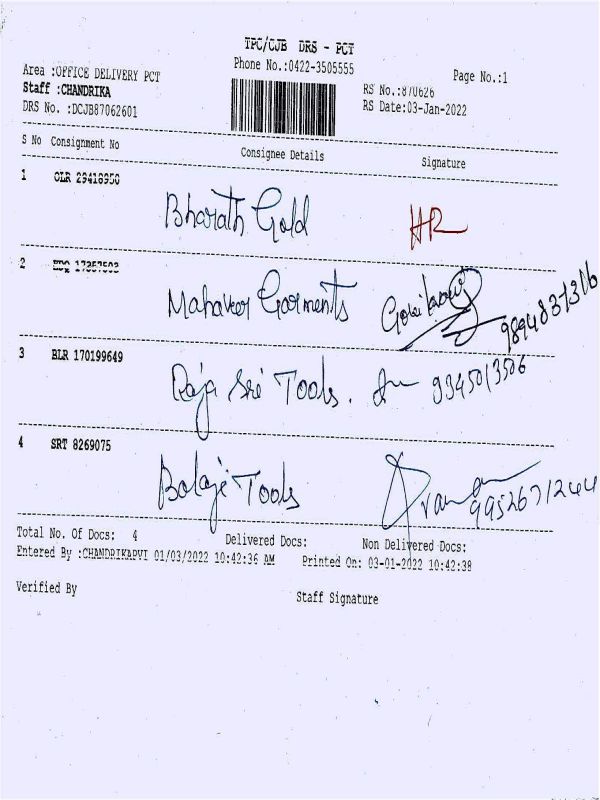 TPC/CJB DRS - PCT
Phone No.:0422-3505555
Page No.:1
Area :OFFICE DELIVERY PCT
Staff :CHANDRIKA
RS No.:870626
DRS No. :DCJB87062601
RS Date:03-Jan-2022
S No Consignment No Consignee Details Signature
1 OLR 29418950
Bharath Gold HR
2
Mahaveer Garments 9894837316
3 BLR 170199649
Raja Sri Tools. 9345013506
4 SRT 8269075
Balaje Tools 9952671244
Total No. Of Docs: 4 Delivered Docs: Non Delivered Docs:
Entered By :CHANDRIKAPVI 01/03/2022 10:42:36 AM Printed On: 03-01-2022 10:42:38
Verified By Staff Signature